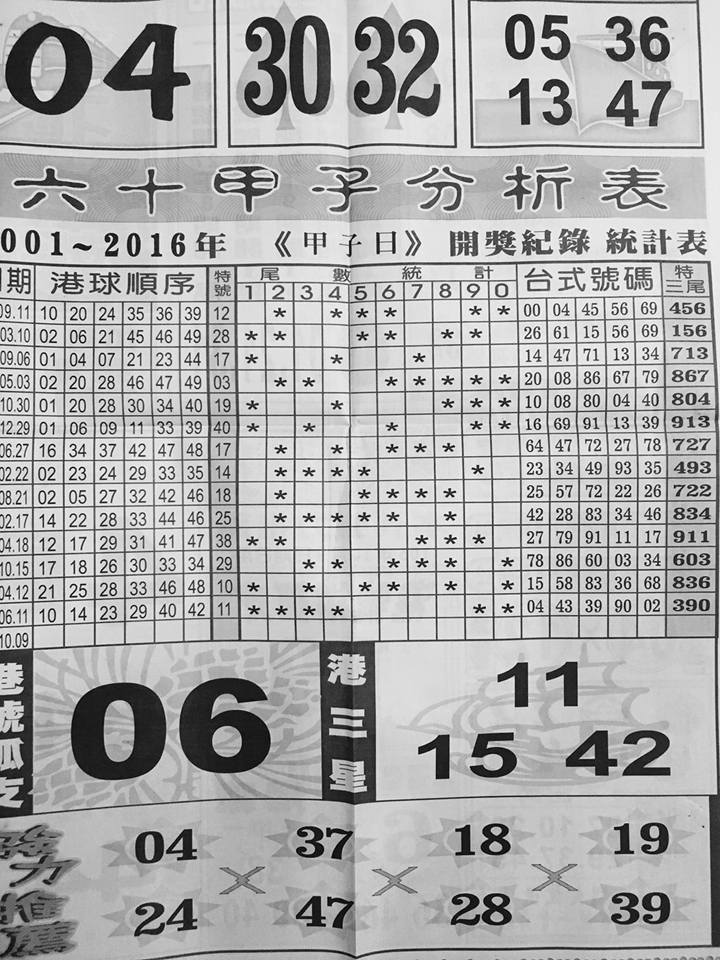 04 30 32 05 36
13 47
六十甲子分析表
001~2016年 《甲子日》 開獎紀錄 統計表
期 港球順序 特號 尾數統計 台式號碼 特三尾
1 2 3 4 5 6 7 8 9 0
09.11 10 20 24 35 36 39 12 * * * * * * 00 04 45 56 69 456
03.10 02 06 21 45 46 49 28 * * * * * * 26 61 15 56 69 156
09.06 01 04 07 21 23 44 17 * * * 14 47 71 13 34 713
05.03 02 20 28 46 47 49 03 * * * * * * * 20 08 86 67 79 867
10.30 01 20 28 30 34 40 19 * * * * * 10 08 80 04 40 804
12.29 01 06 09 11 33 39 40 * * * * * 16 69 91 13 39 913
06.27 16 34 37 42 47 48 17 * * * * * 64 47 72 27 78 727
02.22 02 23 24 29 33 35 14 * * * * * 23 34 49 93 35 493
08.21 02 05 27 32 42 46 18 * * * * * 25 57 72 22 26 722
02.17 14 22 28 33 44 46 25 * * * * * * 42 28 83 34 46 834
04.18 12 17 29 31 41 47 38 * * * * * 27 79 91 11 17 911
10.15 17 18 26 30 33 34 29 * * * * * * 78 86 60 03 34 603
04.12 21 25 28 33 46 48 10 * * * * * * 15 58 83 36 68 836
06.11 10 14 23 29 40 42 11 * * * * * * 04 43 39 90 02 390
10.09
港號孤支 06 港三星 11
15 42
強力推薦 04 37 18 19
24 47 28 39